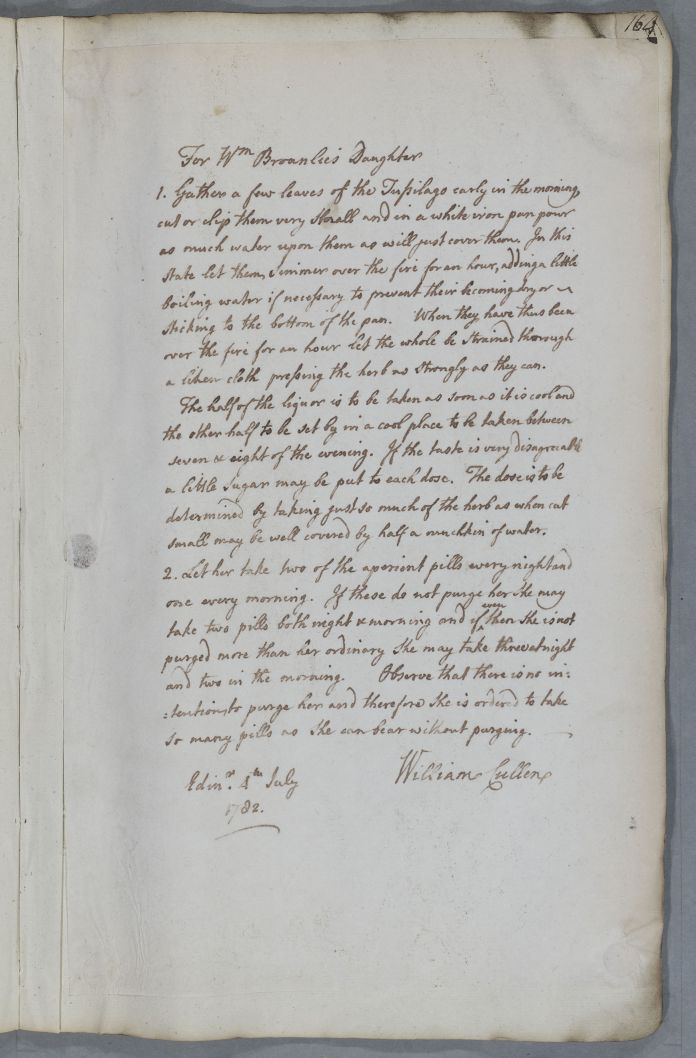 164
For Wm Brounlie's Daughter
1. Gather a few leaves of the Tussilago early in the morning,
cut or clip them very Small and in a white iron pan pour
as much water upon them as will just cover them. In this
State let them Simmer over the fire for an hour, adding a little
boiling water if necessary to prevent their becoming dry or
Sticking to the bottom of the pan. When they have thus been
over the fire for an hour let the whole be Strained thorough
a linen cloth pressing the herb as strongly as they can.
The half of the liquor is to be taken as soon as it is cool and
the other half to be set by in a cool place to be taken between
seven & eight of the evening. If the taste is very disagreeable
a little Sugar may be put to each dose. The dose is to be
determined by taking just so much of the herb as when cut
small may be well covered by half a mutchkin of water.
2. Let her take two of the aperient pills every night and
one every morning. If these do not purge her She may
take two pills both night & morning and if even then She is not
purged more than her ordinary She may take three at night
and two in the morning. Observe that there is no in:
:tention to purge her and therefore She is ordered to take
So many pills as She can bear without purging.
Edinr. 4th July William Cullen
1782.